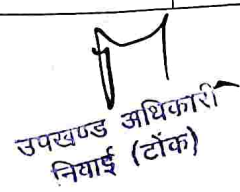 उपखण्ड अधिकारी
नियाई (टोंक)